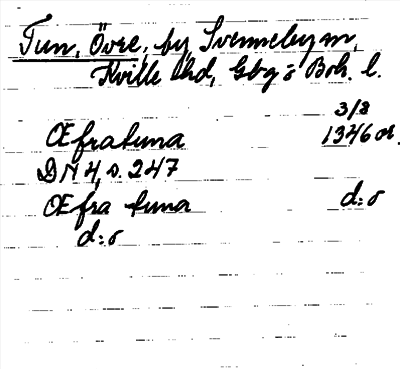 Tun, Övre, by, Svenneby sn,
Kville hd, Gbg o Boh. l.
3/8
Œfratuna 1346 or.
DN 4, s. 247
Œfra tuna d:o
d:o